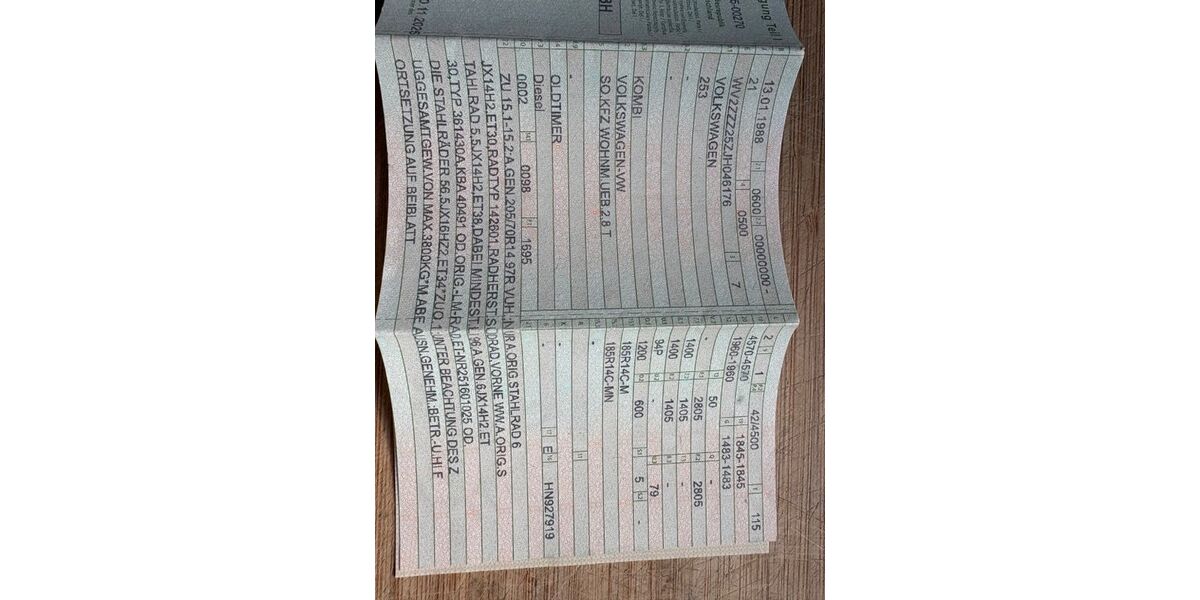 gung Teil I
6-00270
3H
0 11 2026
13.01.1988 0600 00000000 -
21 0500 7
WV2ZZZ25ZJH046176
VOLKSWAGEN
253
-
-
KOMBI
VOLKSWAGEN-VW
SO.KFZ WOHNM.UEB.2,8 T
-
OLDTIMER
Diesel
0002 0098 1695
2 1 42/4500 115
4570-4570 1845-1845
1960-1960 1483-1483
- 50 -
1400 2805 2805
1400 1405 -
94P 1405 -
1200 - 79
600 5 -
185R14C-M
185R14C-MN
-
-
- E HN927919
ZU 15.1-15.2:A.GEN.205/70R14 97R VUH.:NUR A.ORIG.STAHLRAD 6
JX14H2,ET30,RADTYP 142801,RADHERST:SÜDRAD,VORNE WW.A.ORIG.S
TAHLRAD 5,5JX14H2,ET38,DABEI MINDEST LI 96;A.GEN.6JX14H2,ET
30,TYP 361430A,KBA 40491 OD.ORIG.-LM-RAD,ET-NR251601025 OD.
DIE STAHLRÄDER 56,5JX16HZ2,ET34*ZUO.1:UNTER BEACHTUNG DES Z
UGGESAMTGEW.VON MAX.3800KG*M.ABE AUSN.GENEHM.:BETR.-U.HI F
ORTSETZUNG AUF BEIBLATT